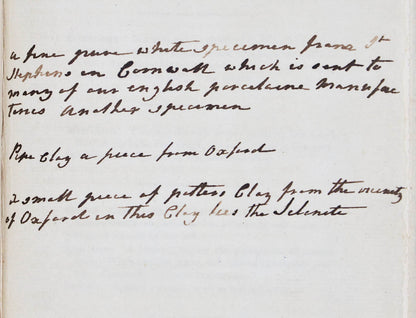 a fine pure white specimen from St
Stephens in Cornwall which is sent to
many of our english porcelaine Manufac
tories Another specimen
Pipe Clay a piece from Oxford
a small piece of potters Clay from the vicinety
of Oxford in this Clay lies the Selenete